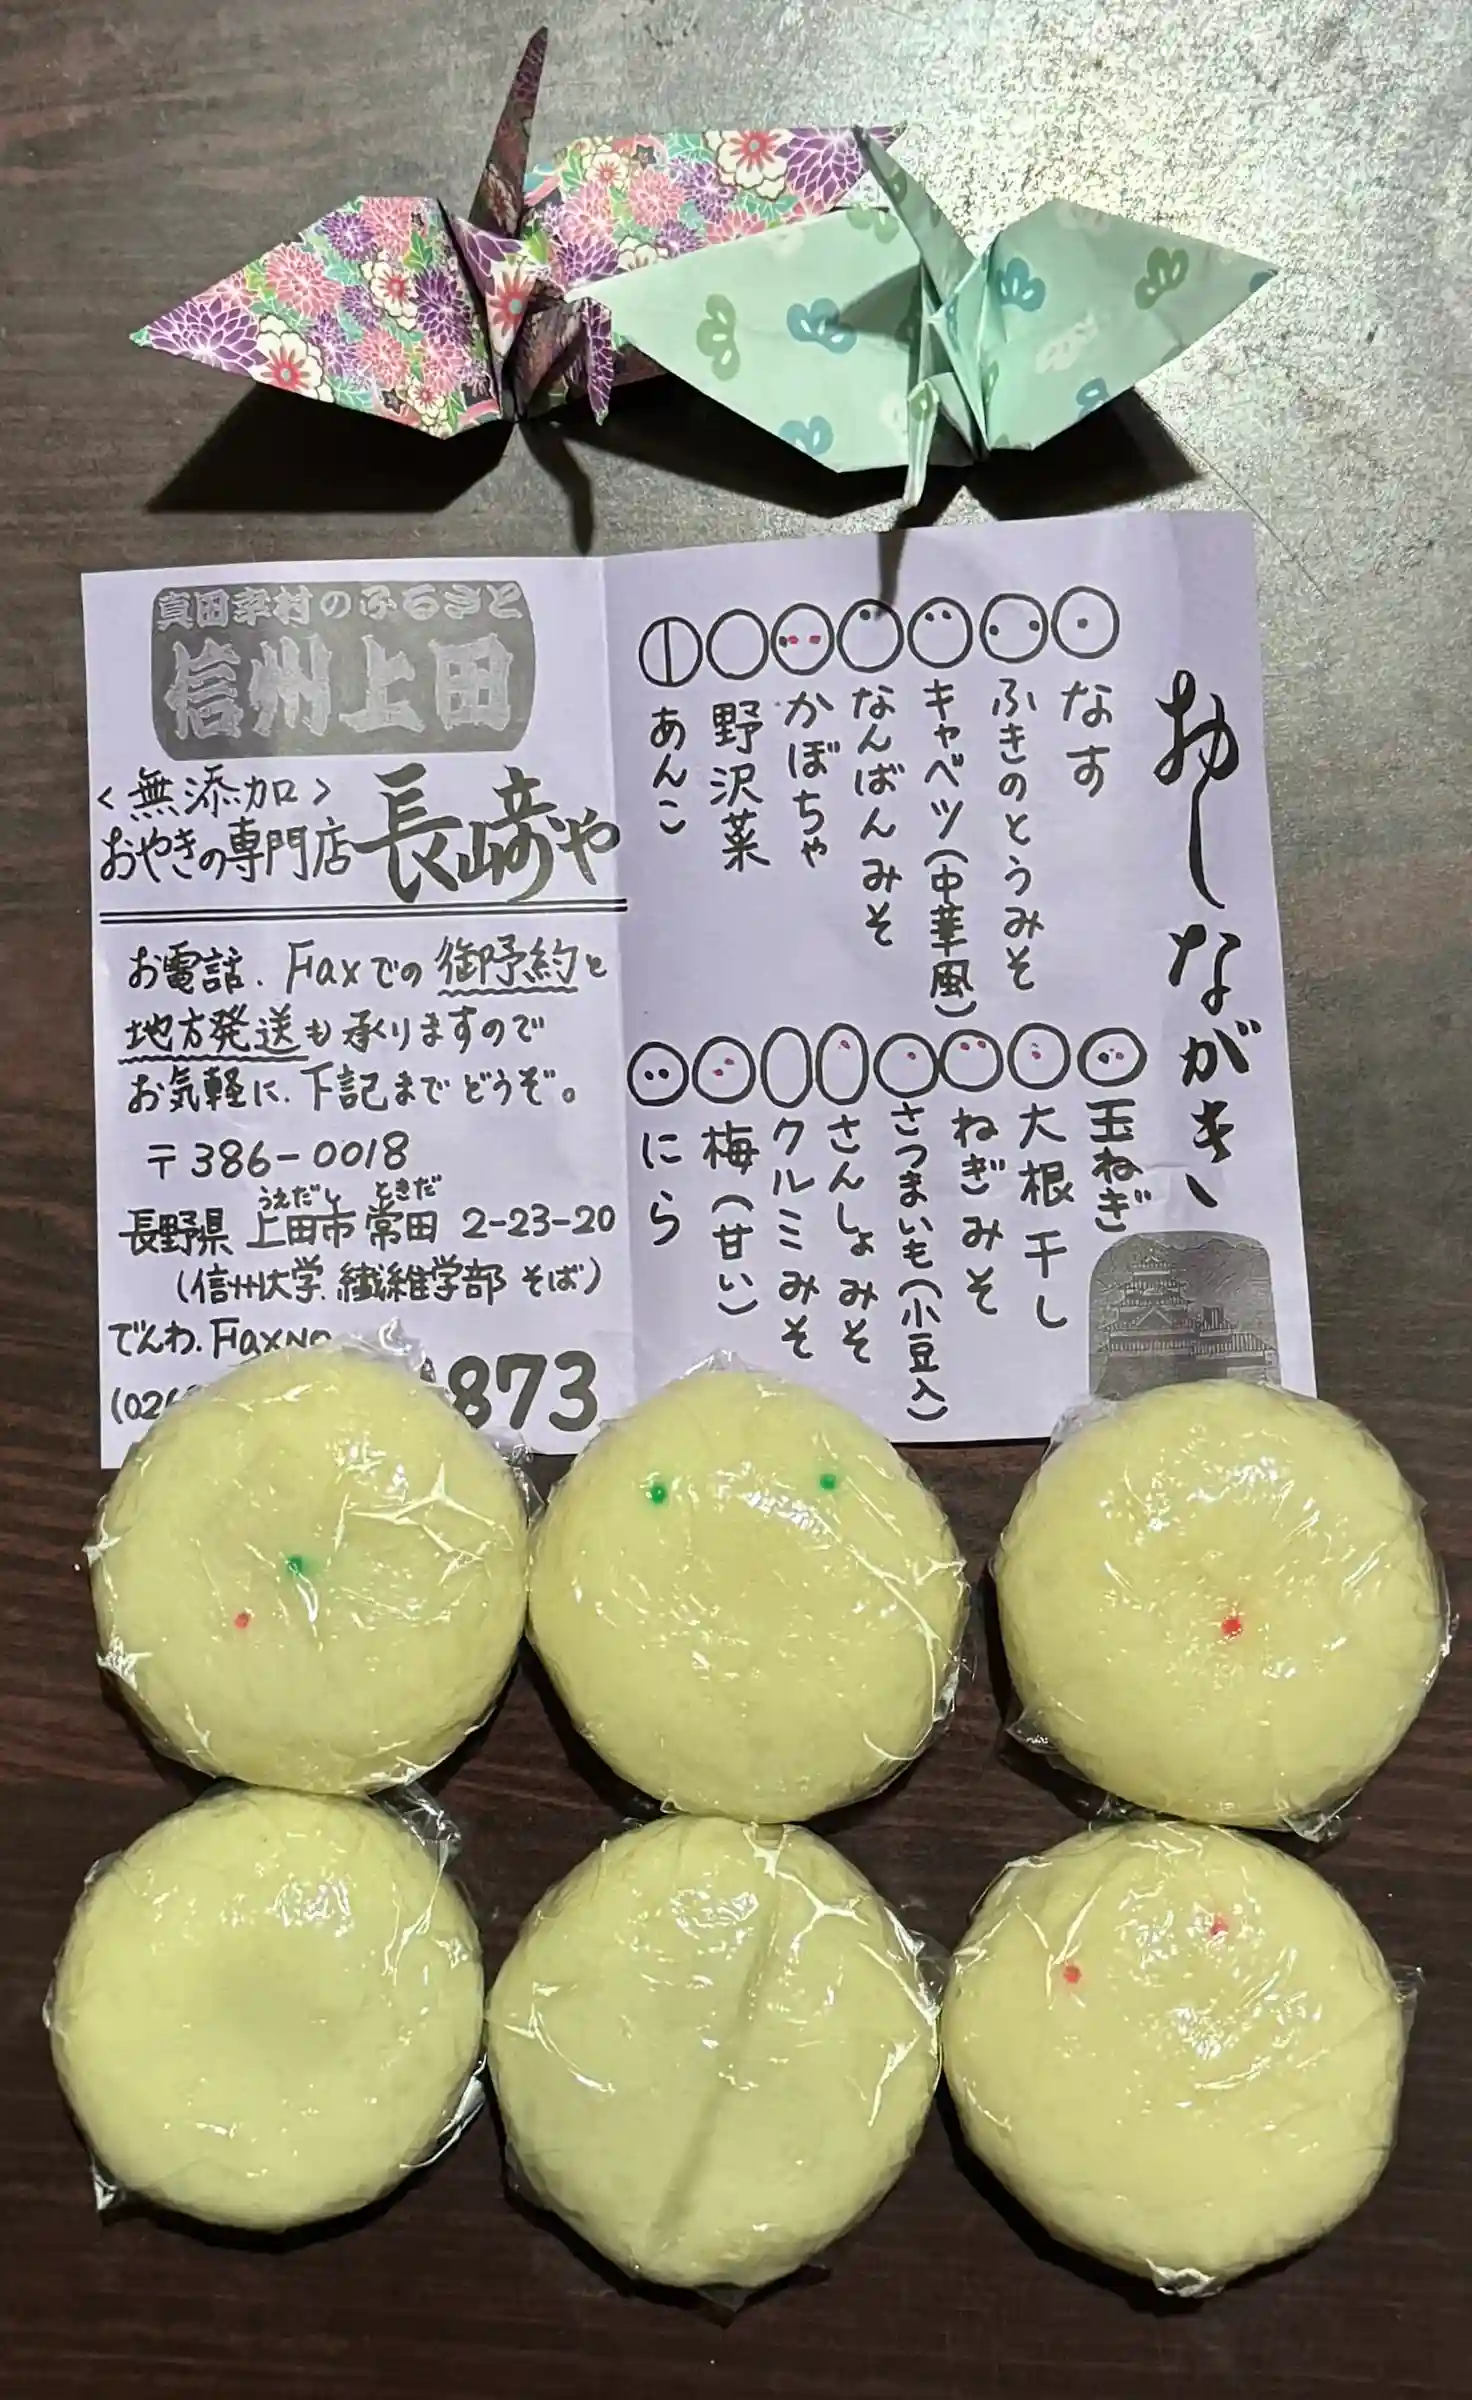 真田幸村のふるさと
信州上田
<無添加>
おやきの専門店 長崎や
お電話.Faxでの御予約と
地方発送も承りますので
お気軽に.下記までどうぞ。
〒386-0018
うえだし ときだ
長野県 上田市 常田 2-23-20
(信州大学.繊維学部 そば)
でんわ.FaxNo
(026 873
おしながき
なす
ふきのとうみそ
キャベツ(中華風)
なんばんみそ
かぼちゃ
野沢菜
あんこ
玉ねぎ
大根干し
ねぎみそ
さつまいも(小豆入)
さんしょみそ
クルミみそ
梅(甘い)
にら